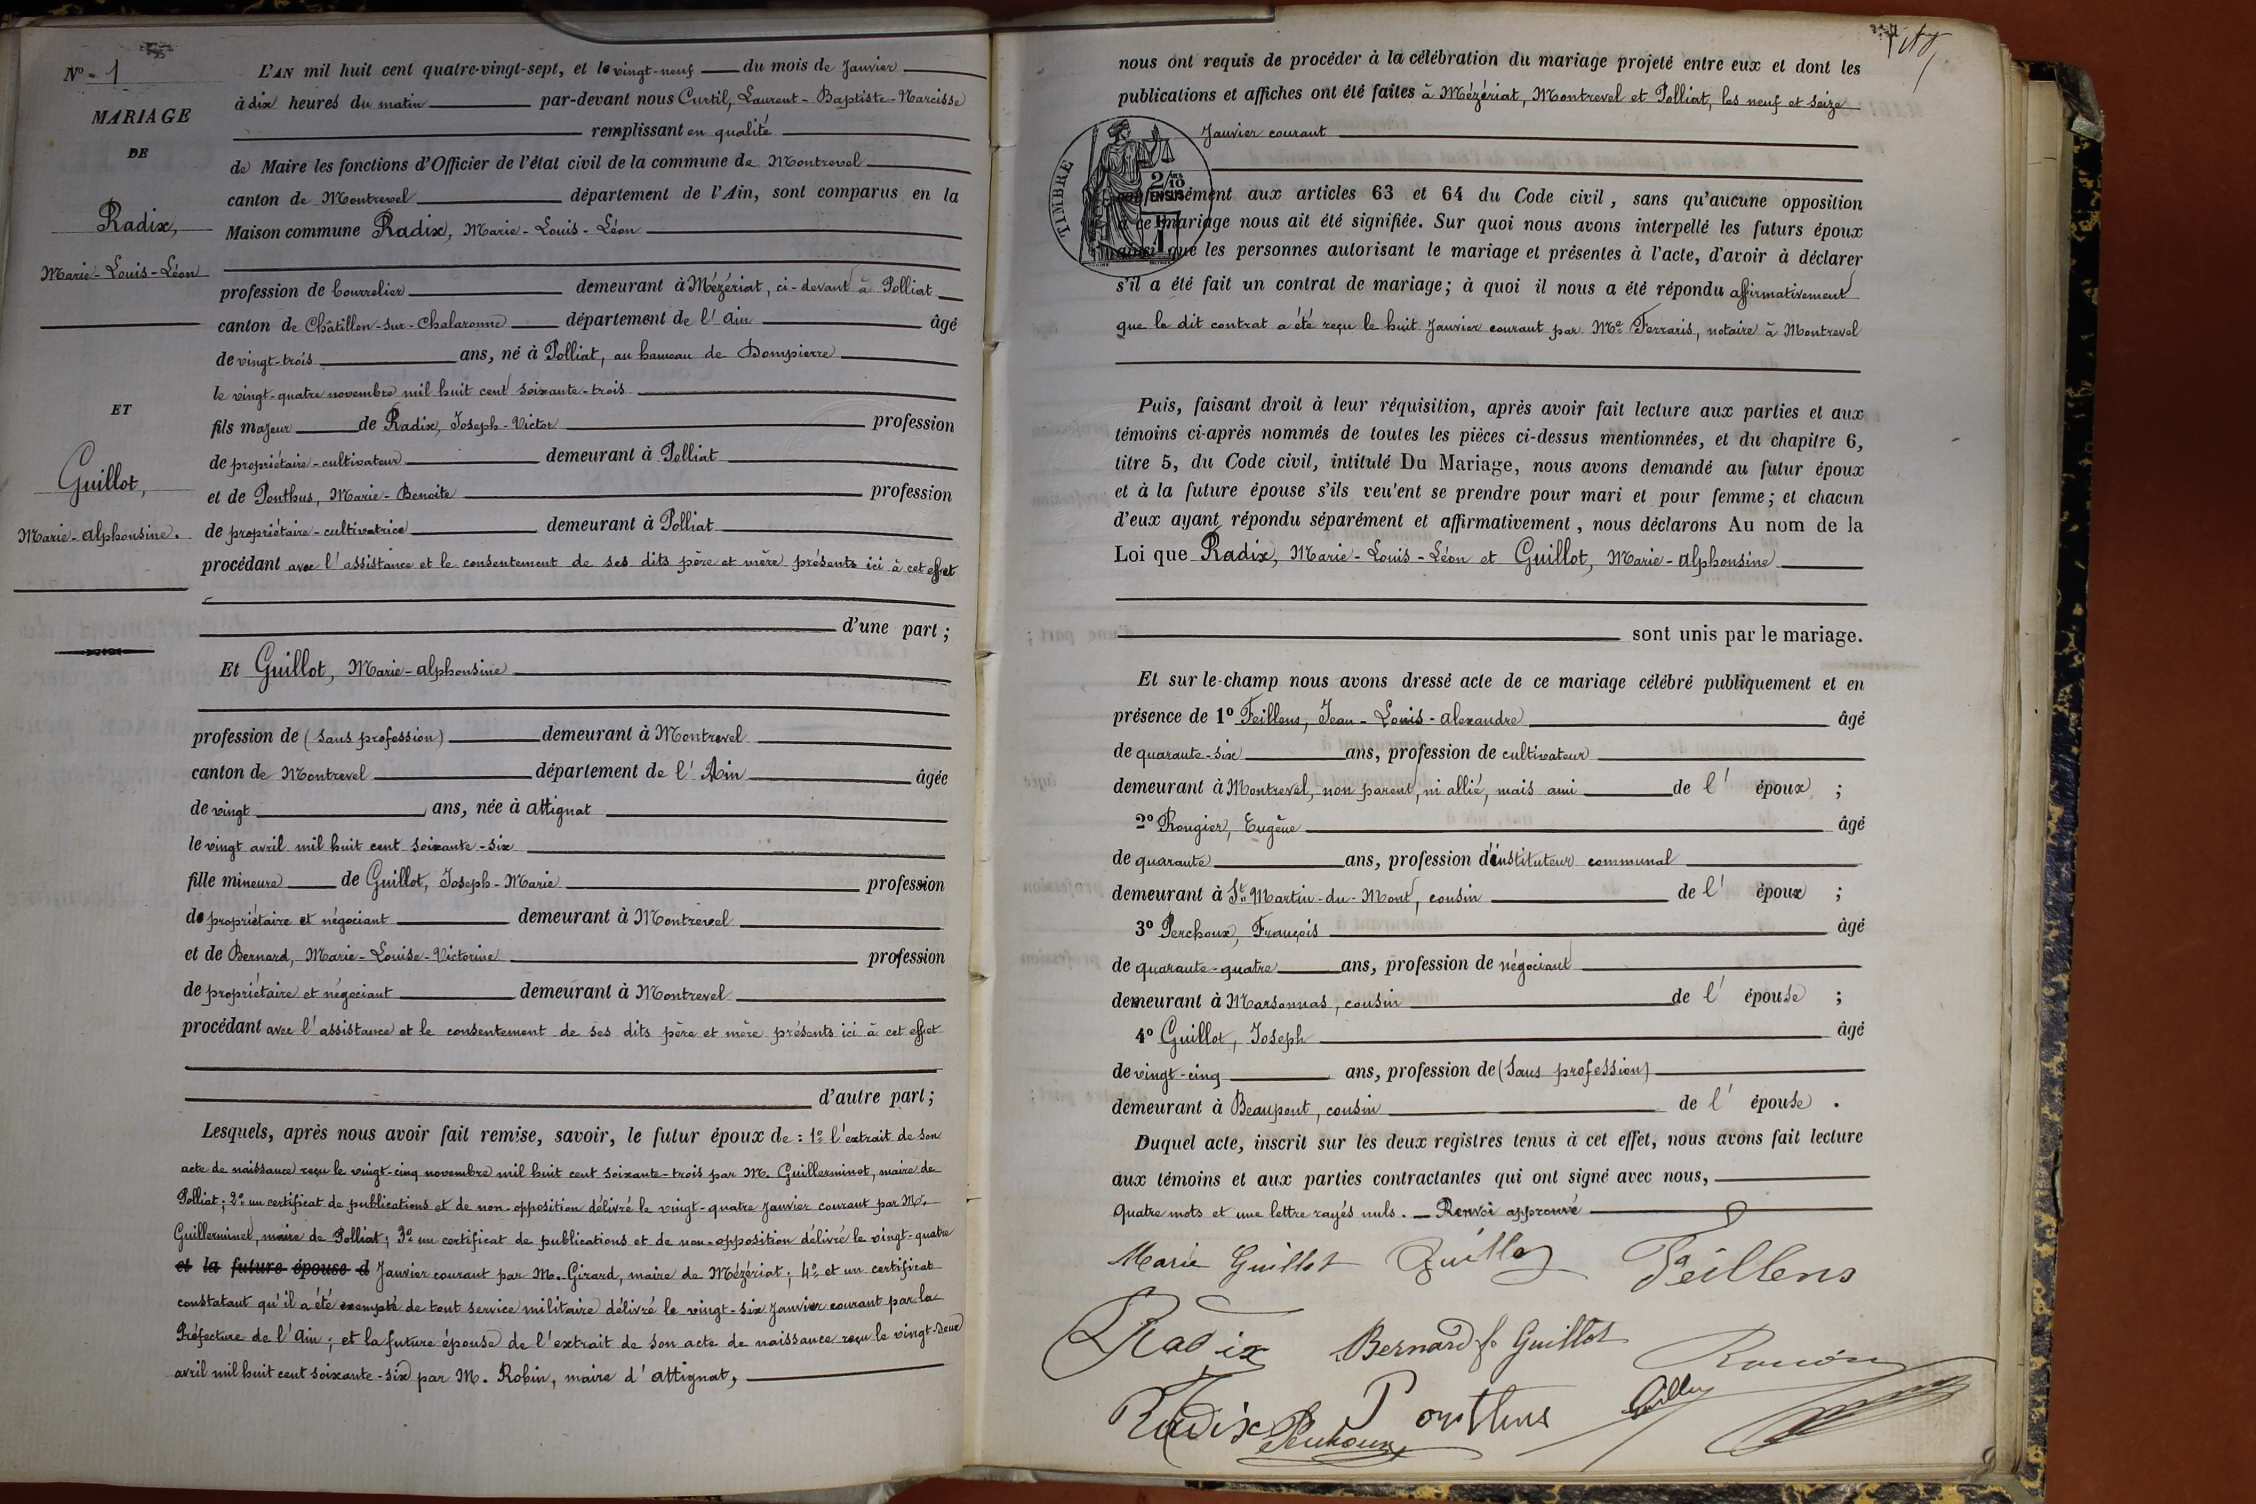 N° - 1
MARIAGE
DE
Radix,
Marie-Louis-Léon
ET
Guillot,
Marie-Alphonsine.
L'AN mil huit cent quatre-vingt-sept, et le vingt-neuf du mois de Janvier
à dix heures du matin par-devant nous Curtil, Laurent-Baptiste-Narcisse
remplissant en qualité
de Maire les fonctions d'Officier de l'état civil de la commune de Montrevel
canton de Montrevel département de l'Ain, sont comparus en la
Maison commune Radix, Marie-Louis-Léon
profession de Bourrelier demeurant à Mézériat, ci-devant à Polliat
canton de Châtillon-sur-Chalaronne département de l'Ain âgé
de vingt-trois ans, né à Polliat, au hameau de Dompierre
le vingt-quatre novembre mil huit cent soixante-trois
fils majeur de Radix, Joseph-Victor profession
de propriétaire-cultivateur demeurant à Polliat
et de Ponthus, Marie-Benoite profession
de propriétaire-cultivatrice demeurant à Polliat
procédant avec l'assistance et le consentement de ses dits père et mère présents ici à cet effet
d'une part ;
Et Guillot, Marie-Alphonsine
profession de (sans profession) demeurant à Montrevel
canton de Montrevel département de l'Ain âgée
de vingt ans, née à Attignat
le vingt avril mil huit cent soixante-six
fille mineure de Guillot, Joseph-Marie profession
de propriétaire et négociant demeurant à Montrevel
et de Bernard, Marie-Louise-Victorine profession
de propriétaire et négociant demeurant à Montrevel
procédant avec l'assistance et le consentement de ses dits père et mère présents ici à cet effet
d'autre part ;
Lesquels, après nous avoir fait remise, savoir, le futur époux de : 1° l'extrait de son
acte de naissance reçu le vingt-cinq novembre mil huit cent soixante-trois par M. Guillerminet, maire de
Polliat ; 2° un certificat de publications et de non-opposition délivré le vingt-quatre Janvier courant par M.
Guillerminet, maire de Polliat ; 3° un certificat de publications et de non-opposition délivré le vingt-quatre
et la future épouse d Janvier courant par M. Girard, maire de Mézériat ; 4° et un certificat
constatant qu'il a été exempté de tout service militaire délivré le vingt-six Janvier courant par la
Préfecture de l'Ain ; et la future épouse de l'extrait de son acte de naissance reçu le vingt-deux
avril mil huit cent soixante-six par M. Robin, maire d'Attignat,
nous ont requis de procéder à la célébration du mariage projeté entre eux et dont les
publications et affiches ont été faites à Mézériat, Montrevel et Polliat, les neuf et seize
Janvier courant
TIMBRE
2/10 EN SUS
conformément aux articles 63 et 64 du Code civil, sans qu'aucune opposition
à ce mariage nous ait été signifiée. Sur quoi nous avons interpellé les futurs époux
ainsi que les personnes autorisant le mariage et présentes à l'acte, d'avoir à déclarer
s'il a été fait un contrat de mariage ; à quoi il nous a été répondu affirmativement
que le dit contrat a été reçu le huit Janvier courant par Me Ferraris, notaire à Montrevel
Puis, faisant droit à leur réquisition, après avoir fait lecture aux parties et aux
témoins ci-après nommés de toutes les pièces ci-dessus mentionnées, et du chapitre 6,
titre 5, du Code civil, intitulé Du Mariage, nous avons demandé au futur époux
et à la future épouse s'ils veu'ent se prendre pour mari et pour femme ; et chacun
d'eux ayant répondu séparément et affirmativement, nous déclarons Au nom de la
Loi que Radix, Marie-Louis-Léon et Guillot, Marie-Alphonsine
sont unis par le mariage.
Et sur le-champ nous avons dressé acte de ce mariage célébré publiquement et en
présence de 1° Feillens, Jean-Louis-Alexandre âgé
de quarante-six ans, profession de cultivateur
demeurant à Montrevel, non parent, ni allié, mais ami de l'époux ;
2° Rougier, Eugène âgé
de quarante ans, profession d'instituteur communal
demeurant à St Martin-du-Mont, cousin de l'époux ;
3° Perchoux, François âgé
de quarante-quatre ans, profession de négociant
demeurant à Marsonnas, cousin de l'épouse ;
4° Guillot, Joseph âgé
de vingt-cinq ans, profession de (sans profession)
demeurant à Beaupont, cousin de l'épouse.
Duquel acte, inscrit sur les deux registres tenus à cet effet, nous avons fait lecture
aux témoins et aux parties contractantes qui ont signé avec nous,
Quatre mots et une lettre rayés nuls. — Renvoi approuvé
Marie Guillot Guillot Feillens
Radix Bernard f. Guillot
Radix Ponthus
Perchoux